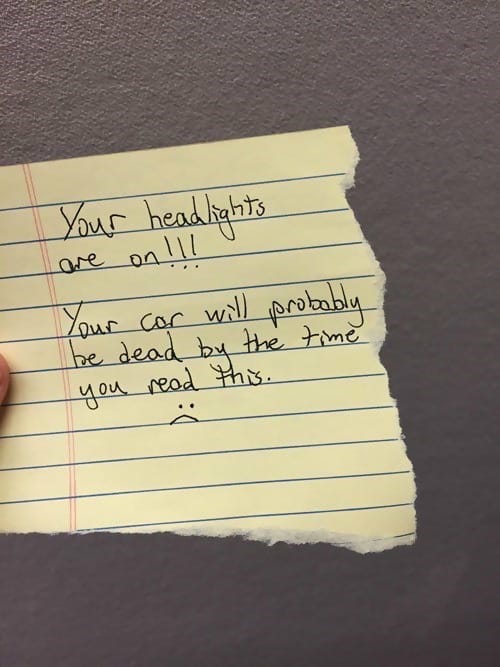 Your headlights
are on!!!
Your car will probably
be dead by the time
you read this.
:(